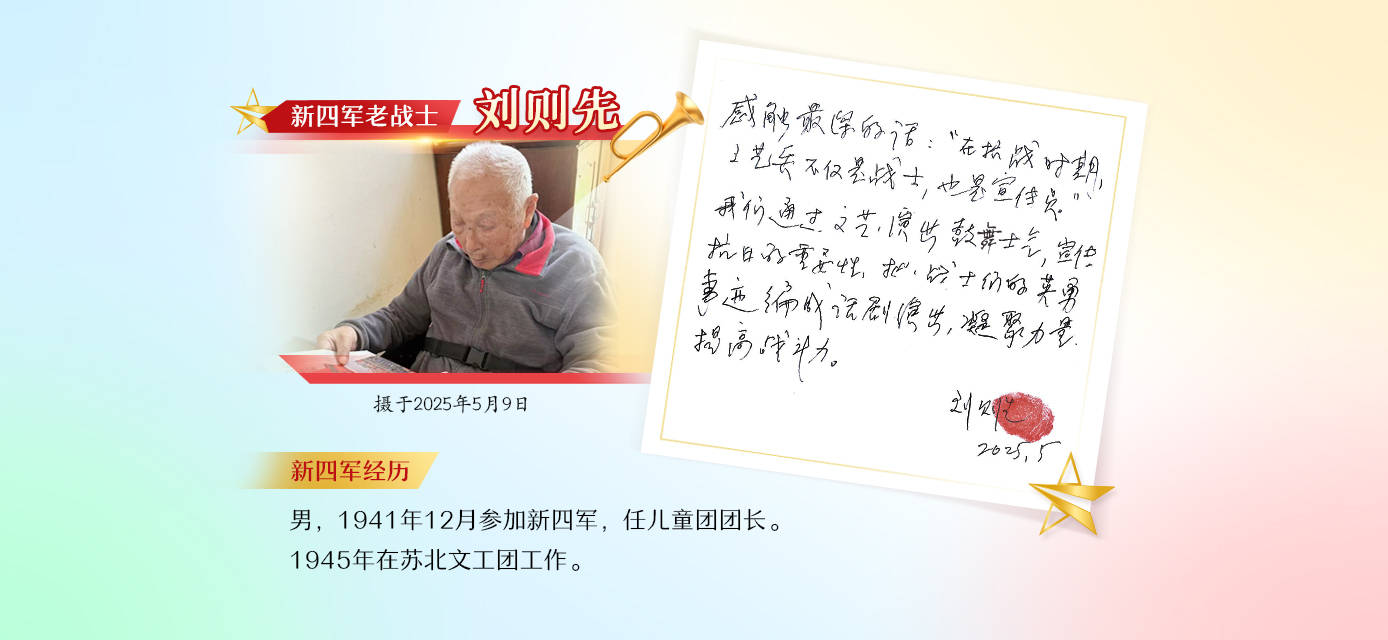 新四军老战士
刘则先
感触最深的话：“在抗战时期，
文艺兵不仅是战士，也是宣传员。”
我们通过文艺演出鼓舞士气，宣传
抗日的重要性，把战士们的英勇
事迹编成话剧演出，凝聚力量
提高战斗力。
刘则先
2025.5
摄于2025年5月9日
新四军经历
男，1941年12月参加新四军，任儿童团团长。
1945年在苏北文工团工作。